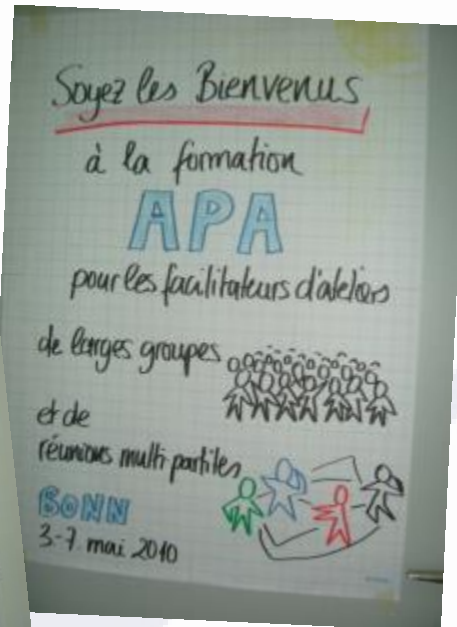 Soyez les Bienvenus
à la formation
APA
pour les facilitateurs d'ateliers
de larges groupes
et de
réunions multi partites
BONN
3-7 mai 2010